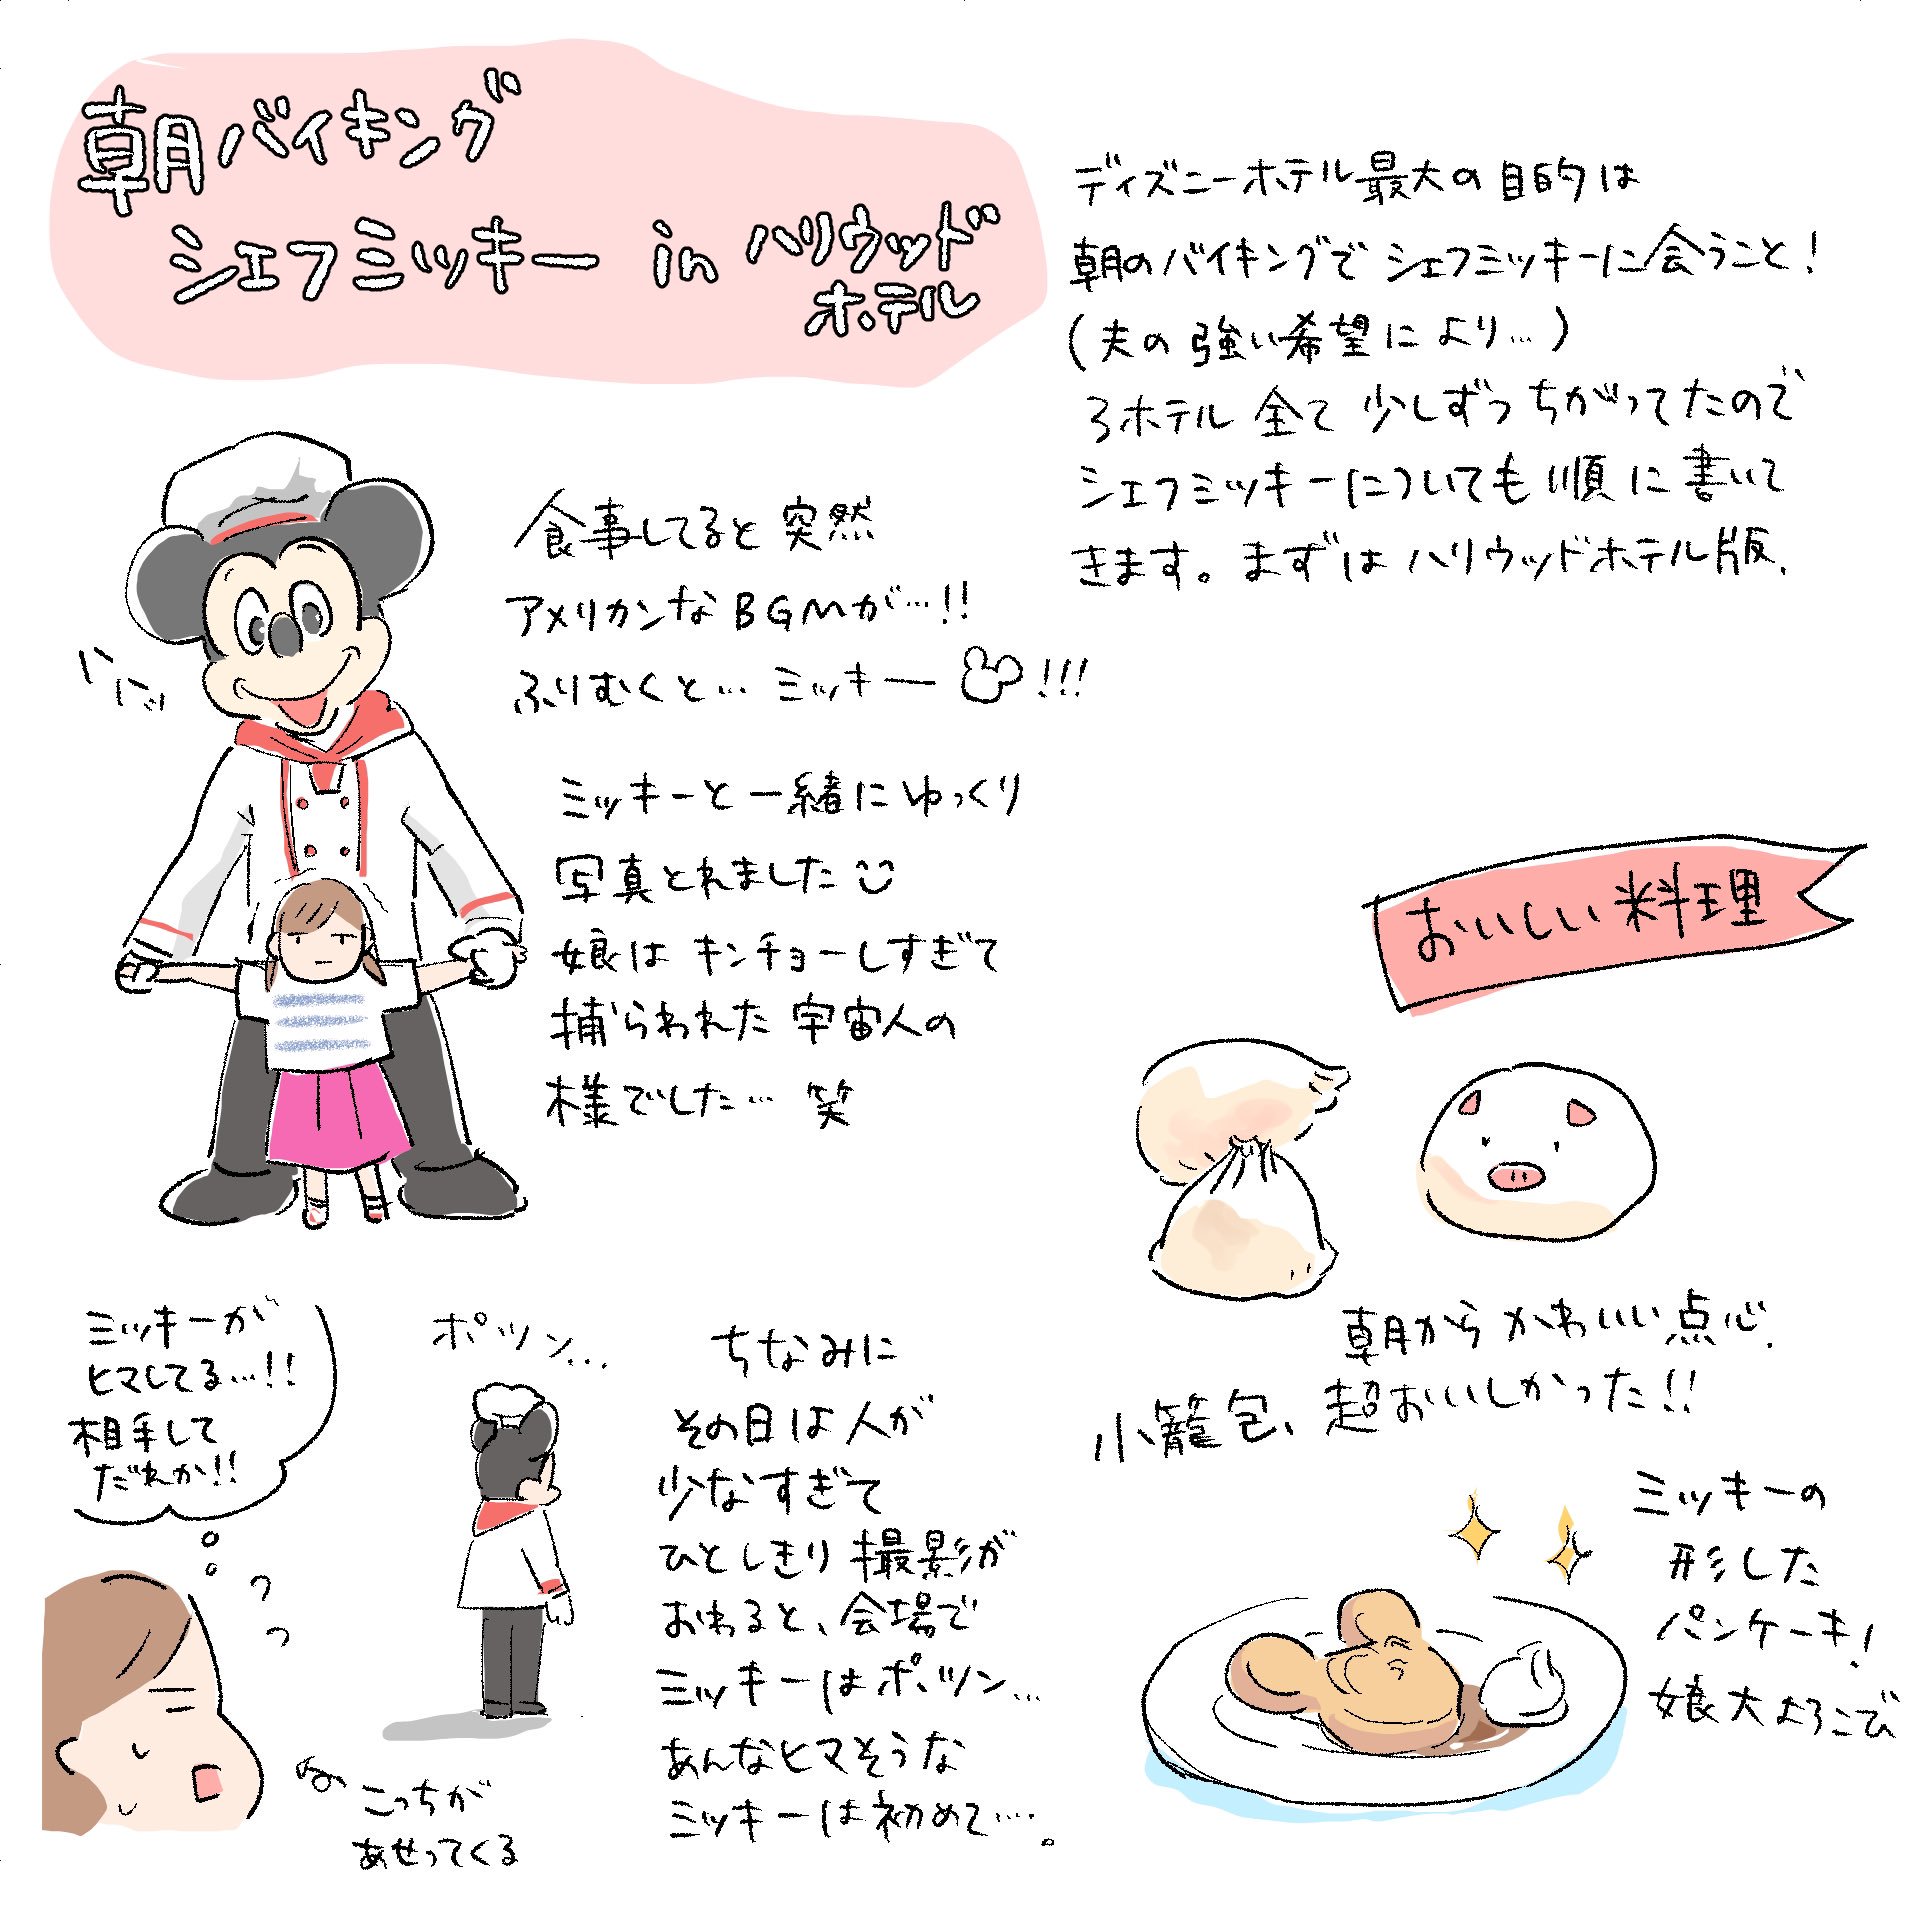 朝バイキング
シェフミッキー in ハリウッド
ホテル
ディズニーホテル最大の目的は
朝のバイキングでシェフミッキーに会うこと！
(夫の強い希望により…)
3ホテル全て少しずつちがってたので
シェフミッキーについても順に書いて
きます。まずはハリウッドホテル版.
食事してると突然
アメリカンなBGMが…!!
ふりむくと… ミッキー!!!
ミッキーと一緒にゆっくり
写真とれました
娘はキンチョーしすぎて
捕らわれた宇宙人の
様でした… 笑
おいしい料理
朝からかわいい点心.
小籠包、超おいしかった!!
ミッキーの
形した
パンケーキ!
娘大よろこび
ミッキーが
ヒマしてる…!!
相手して
だれか!!
ポツン…
こっちが
あせってくる
ちなみに
その日は人が
少なすぎて
ひとしきり撮影が
おわると、会場で
ミッキーはポツン…
あんなヒマそうな
ミッキーは初めて…。